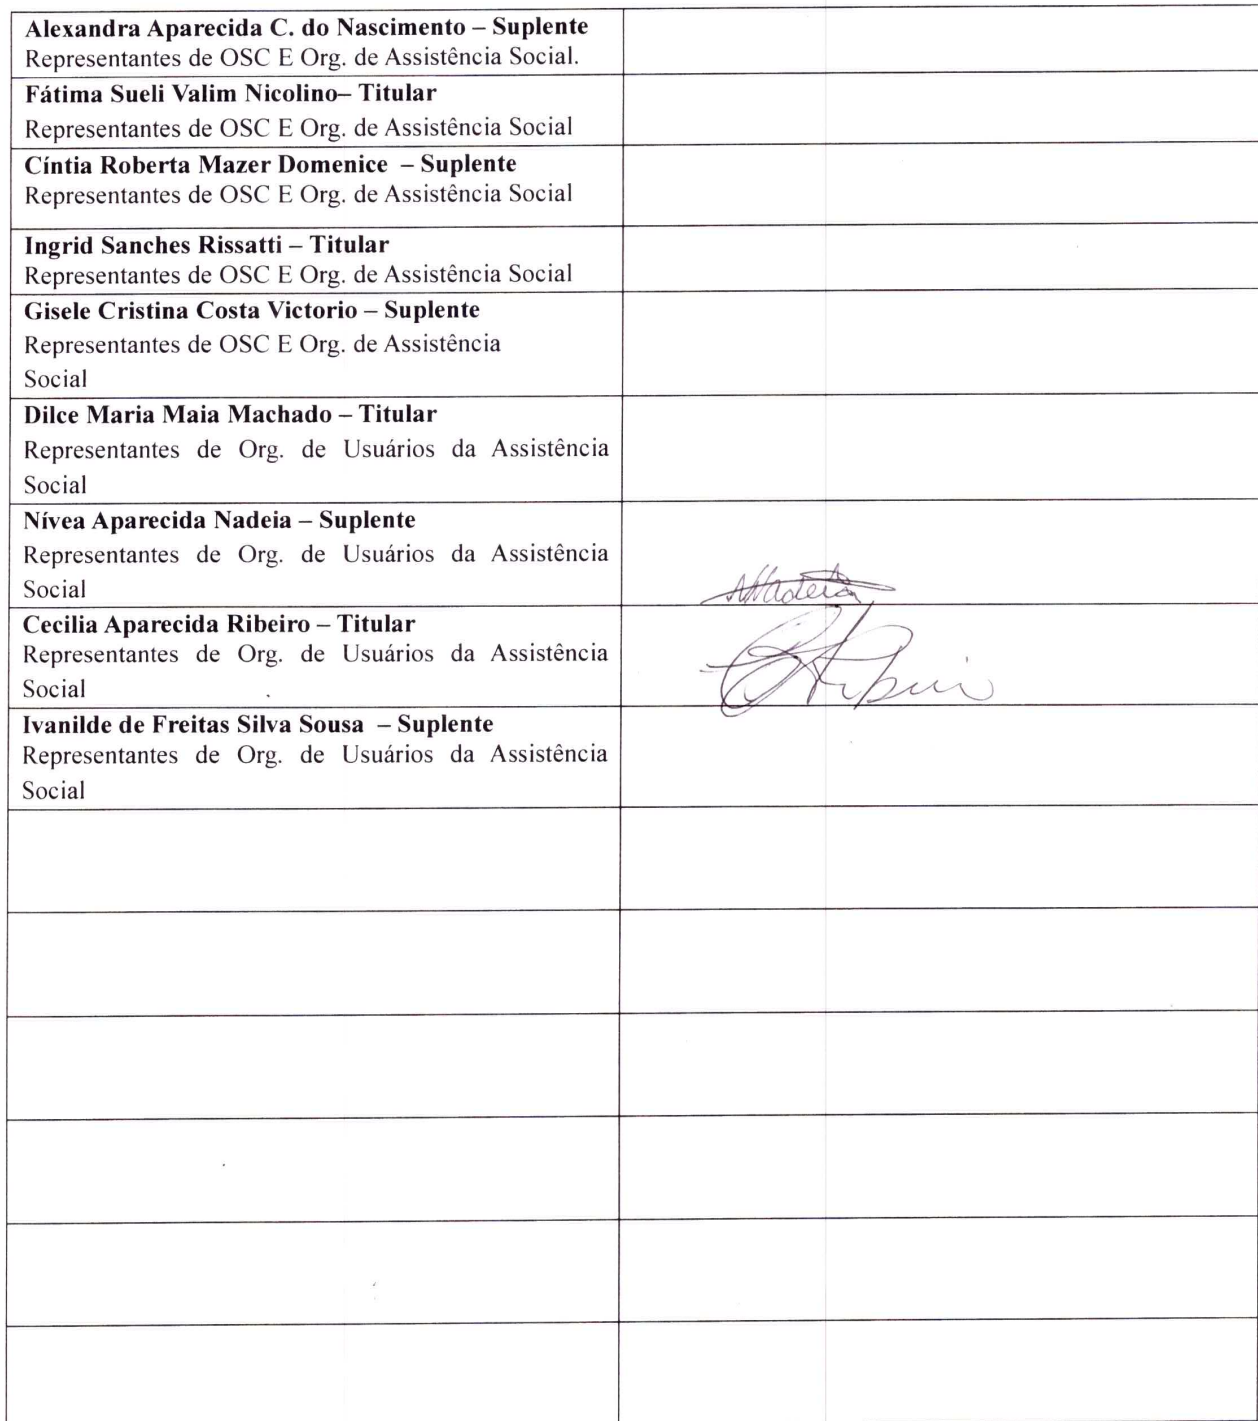 Alexandra Aparecida C. do Nascimento – Suplente
Representantes de OSC E Org. de Assistência Social.
Fátima Sueli Valim Nicolino– Titular
Representantes de OSC E Org. de Assistência Social
Cíntia Roberta Mazer Domenice – Suplente
Representantes de OSC E Org. de Assistência Social
Ingrid Sanches Rissatti – Titular
Representantes de OSC E Org. de Assistência Social
Gisele Cristina Costa Victorio – Suplente
Representantes de OSC E Org. de Assistência
Social
Dilce Maria Maia Machado – Titular
Representantes de Org. de Usuários da Assistência
Social
Nívea Aparecida Nadeia – Suplente
Representantes de Org. de Usuários da Assistência
Social
Cecilia Aparecida Ribeiro – Titular
Representantes de Org. de Usuários da Assistência
Social
Ivanilde de Freitas Silva Sousa – Suplente
Representantes de Org. de Usuários da Assistência
Social